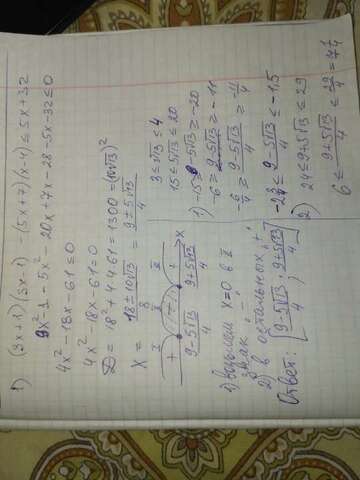 1) (3x+1)(3x-1) - (5x+7)(x-4) ≤ 5x+32
9x²-1-5x²-20x+7x-28-5x-32≤0
4x²-18x-61≤0
4x²-18x-61=0
D=18²+4·4·61=1300=(10√13)²
x = (18±10√13)/8 = (9±5√13)/4
+ - + x
I II III
(9-5√13)/4 (9+5√13)/4
1) возьмем x=0 в II
знак "-"
2) в остальных "+"
Ответ: [(9-5√13)/4 ; (9+5√13)/4]
3≤√13≤4
15≤5√13≤20
1) -15≥-5√13≥-20
-6≥9-5√13≥-11
-6/4≥(9-5√13)/4≥-11/4
-2 3/4≤(9-5√13)/4≤-1,5
2) 24≤9+5√13≤29
6≤(9+5√13)/4≤29/4=7 1/4